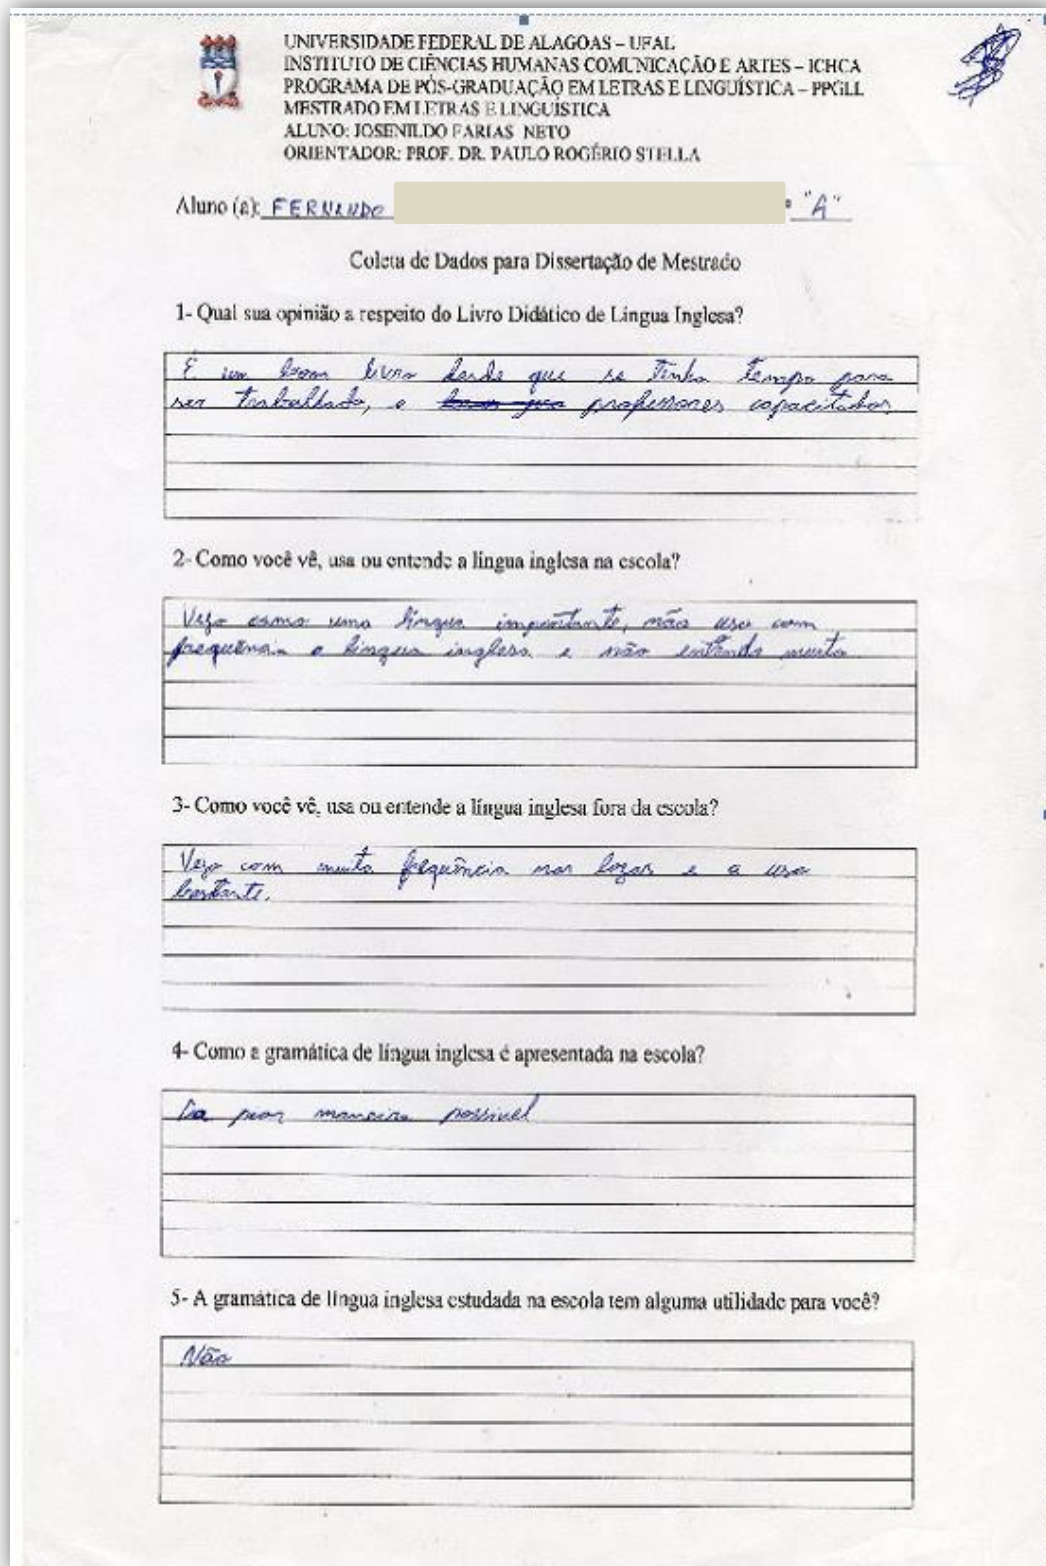 UNIVERSIDADE FEDERAL DE ALAGOAS – UFAL
INSTITUTO DE CIÊNCIAS HUMANAS COMUNICAÇÃO E ARTES – ICHCA
PROGRAMA DE PÓS-GRADUAÇÃO EM LETRAS E LINGUÍSTICA – PPGLL
MESTRADO EM LETRAS E LINGUÍSTICA
ALUNO: JOSENILDO FARIAS NETO
ORIENTADOR: PROF. DR. PAULO ROGÉRIO STELLA
Aluno (a): FERNANDO "A"
Coleta de Dados para Dissertação de Mestrado
1- Qual sua opinião a respeito do Livro Didático de Língua Inglesa?
É um bom livro desde que se tenha tempo para
ser trabalhado, e professores capacitados
2- Como você vê, usa ou entende a língua inglesa na escola?
Vejo como uma língua importante, não uso com
frequência a língua inglesa e não entendo muito
3- Como você vê, usa ou entende a língua inglesa fora da escola?
Vejo com muita frequência nas lojas e a uso
bastante.
4- Como a gramática de língua inglesa é apresentada na escola?
Da pior maneira possivel
5- A gramática de língua inglesa estudada na escola tem alguma utilidade para você?
Não